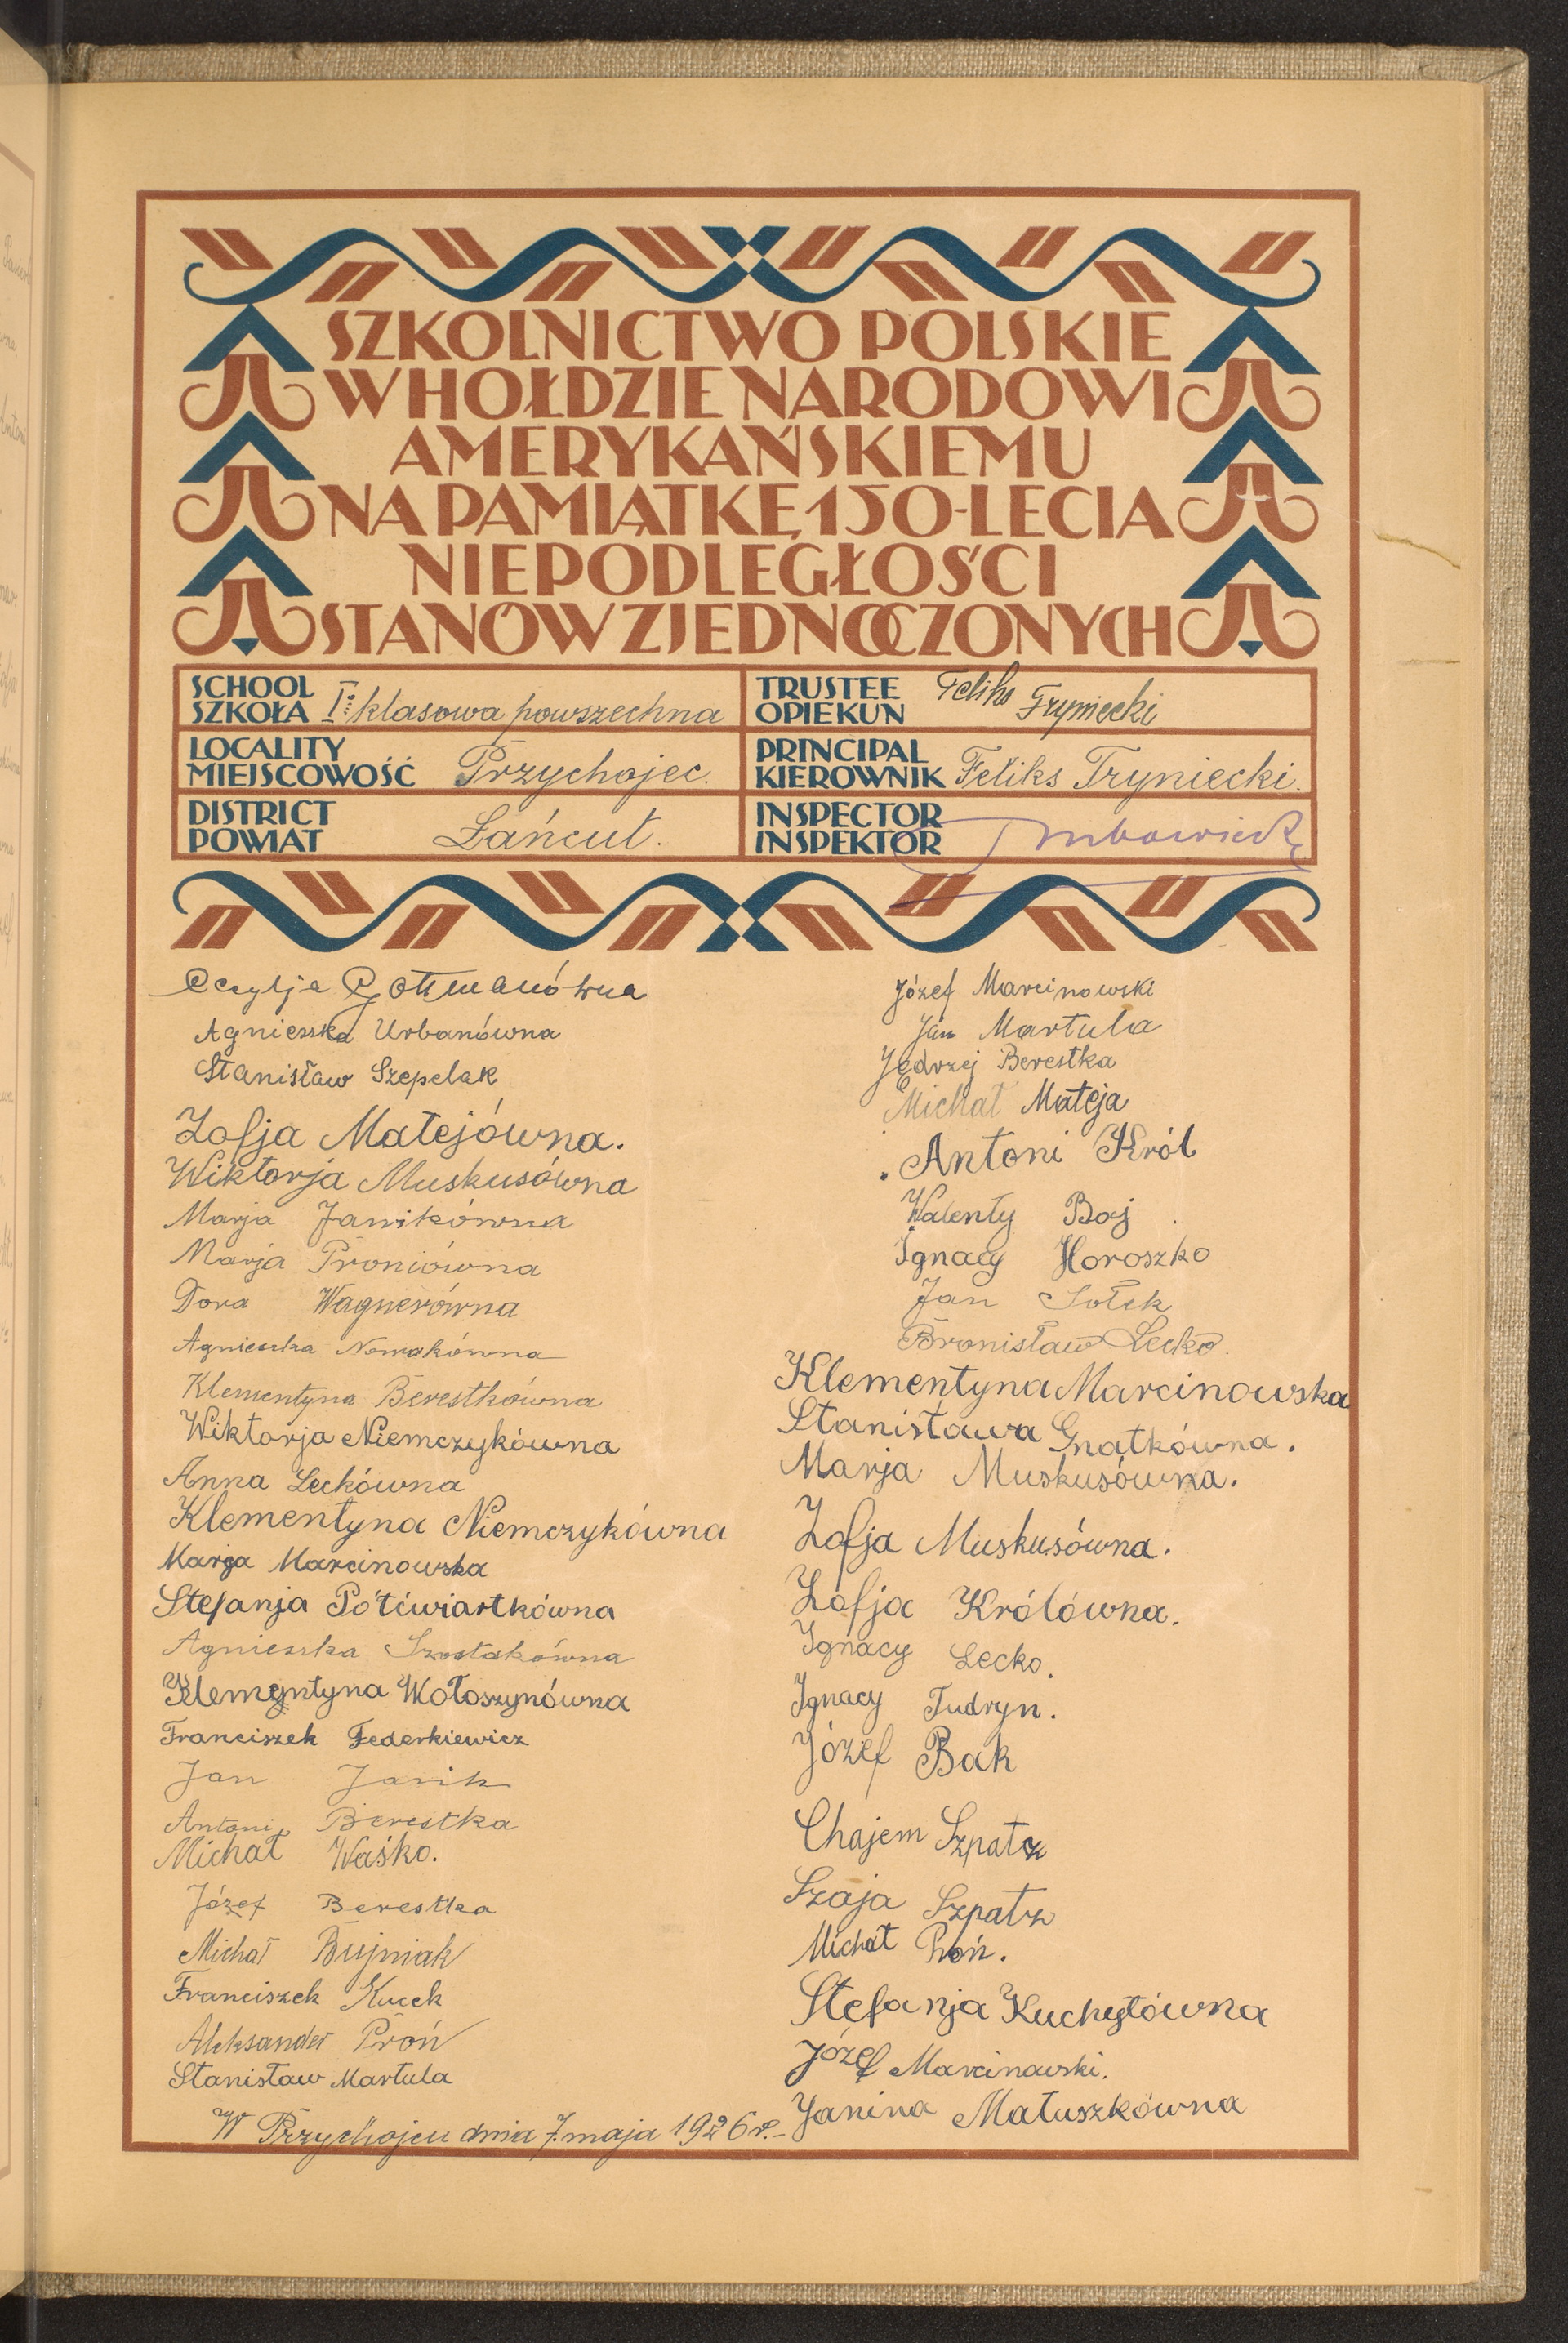 SZKOLNICTWO POLSKIE
W HOŁDZIE NARODOWI
AMERYKAŃSKIEMU
NA PAMIĄTKĘ 150-LECIA
NIEPODLEGŁOŚCI
STANÓW ZJEDNOCZONYCH
SCHOOL
SZKOŁA I: klasowa powszechna
TRUSTEE
OPIEKUN Feliks Tryniecki
LOCALITY
MIEJSCOWOŚĆ Przychojec.
PRINCIPAL
KIEROWNIK Feliks Tryniecki.
DISTRICT
POWIAT Łańcut.
INSPECTOR
INSPEKTOR
Cecylja
Agnieszka Urbanówna
Stanisław Szepelak
Zofja Matejówna.
Wiktorja Muskusówna
Marja Janikówna
Marja Proniówna
Dora Wagnerówna
Agnieszka Nowakówna
Klementyna Berestkówna
Wiktorja Niemczykówna
Anna Leckówna
Klementyna Niemczykówna
Marja Marcinowska
Stefanja Półćwiartkówna
Agnieszka Szostakówna
Klementyna Wołoszynówna
Franciszek Federkiewicz
Jan Janik
Antoni Berestka
Michał Waśko.
Józef Berestka
Michał Bujniak
Franciszek Kucek
Aleksander Proń
Stanisław Martula
W Przychojcu dnia 7. maja 1926 r.-
Józef Marcinowski
Jan Martula
Jędrzej Berestka
Michał Mateja
Antoni Król
Walenty Baj
Ignacy Horoszko
Jan Sołek
Bronisław Lecko.
Klementyna Marcinowska
Stanisława Gnatkówna.
Marja Muskusówna.
Zofja Muskusówna.
Zofja Królówna.
Ignacy Lecko.
Ignacy Tudryn.
Józef Bak
Chajem Szpatz
Szaja Szpatz
Michał Proń.
Stefanja Kuchytówna
Józef Marcinowski.
Janina Matuszkówna